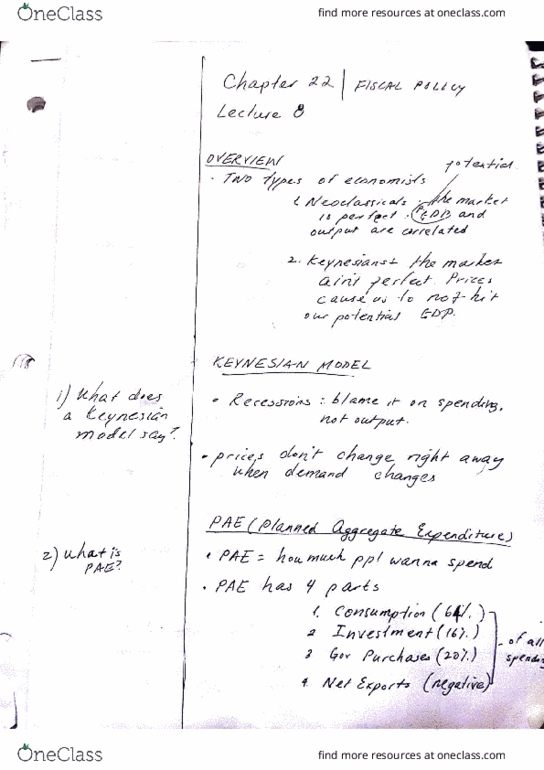 OneClass
find more resources at oneclass.com
Chapter 22 | FISCAL POLICY
Lecture 8
OVERVIEW
potential
• TWO types of economists
1. Neoclassicals: the market
is perfect. GDP and
output are correlated
2. Keynesians: the market
ain't perfect. Prices
cause us to not hit
our potential GDP.
KEYNESIAN MODEL
1) What does
a Keynesian
model say?
• Recessions: blame it on spending,
not output.
• prices don't change right away
when demand changes
PAE (Planned Aggregate Expenditure)
2) What is
PAE?
• PAE = how much ppl wanna spend
• PAE has 4 parts
1. Consumption (64%)
2 Investment (16%)
3 Gov Purchases (20%)
4. Net Exports (negative)
of all
spending
OneClass
find more resources at oneclass.com